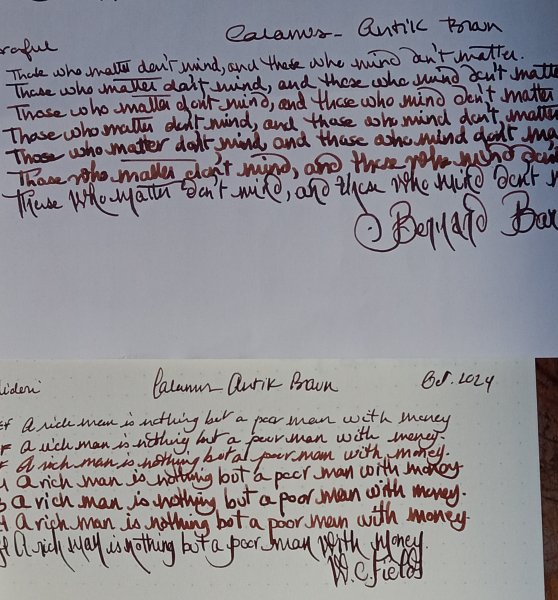 Calamus - Antik Braun
Those who matter don't mind, and those who mind don't matter.
Those who matter don't mind, and those who mind don't matte
Those who matter dont mind, and those who mind don't matter
Those who matter dont mind, and those who mind don't, matter
Those who matter don't mind, and those who mind don't ma
Those who matter don't mind, and those who mind don't
These who matter don't mind, and these who mind don't m
Bernard Bar
Calamus Antik Braun Oct. 2024
EF A rich man is nothing but a poor man with money
F a rich man is nothing but a poor man with money.
F a rich man is nothing but a poor man with money.
A rich man is nothing but a poor man with money
a rich man is nothing but a poor man with money.
A rich man is nothing but a poor man with money.
A rich man is nothing but a poor man with money.
W.C. Fields